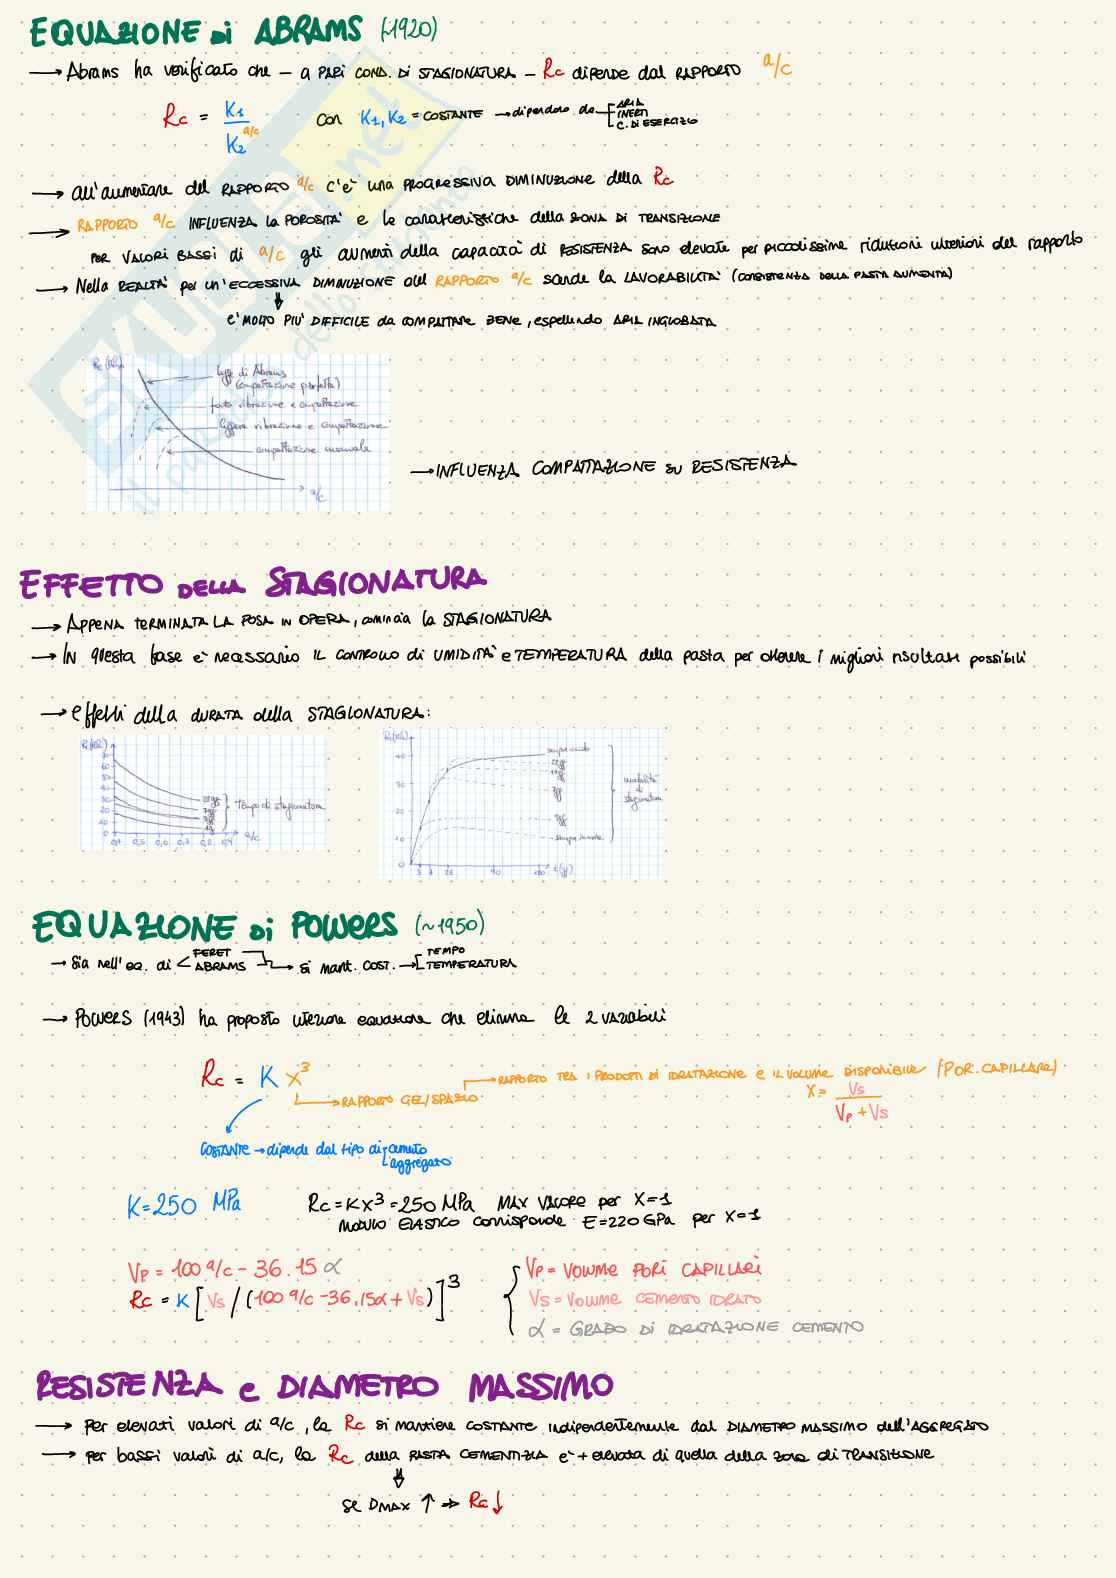 EQUAZIONE di ABRAMS (~1920)
→ Abrams ha verificato che – a PARI COND. DI STAGIONATURA – Rc dipende dal RAPPORTO a/c
Rc = K1 / K2^a/c con K1, K2 = COSTANTE → dipendono da ARIA
INERTI
C. DI ESERCIZIO
→ all'aumentare del RAPPORTO a/c c'è una PROGRESSIVA DIMINUZIONE della Rc
→ RAPPORTO a/c INFLUENZA LA POROSITÀ e le caratteristiche della ZONA DI TRANSIZIONE
PER VALORI BASSI di a/c gli aumenti della capacità di RESISTENZA sono elevate per piccolissime riduzioni ulteriori del rapporto
→ Nella REALTÀ per un'ECCESSIVA DIMINUZIONE del RAPPORTO a/c scende la LAVORABILITÀ (CONSISTENZA DELLA PASTA AUMENTA)
⇓
è MOLTO PIÙ DIFFICILE da COMPATTARE BENE, espellendo ARIA INGLOBATA
legge di Abrams
(compattazione perfetta)
forte vibrazione e compattazione
leggera vibrazione e compattazione
compattazione manuale
a/c
→ INFLUENZA COMPATTAZIONE su RESISTENZA
EFFETTO DELLA STAGIONATURA
→ APPENA TERMINATA LA POSA IN OPERA, comincia la STAGIONATURA
→ IN questa fase è necessario IL CONTROLLO di UMIDITÀ e TEMPERATURA della pasta per ottenere i migliori risultati possibili
→ effetti della DURATA della STAGIONATURA:
Tempo di stagionatura
a/c
sempre umido
modalità
di
stagionatura
EQUAZIONE di POWERS (~1950)
→ Sia nell'eq. di < FERET
ABRAMS → si mant. COST. → TEMPO
TEMPERATURA
→ POWERS (1943) ha proposto ulteriore equazione che elimina le 2 variabili
Rc = K X³
→ RAPPORTO GEL/SPAZIO
→ RAPPORTO TRA I PRODOTTI DI IDRATAZIONE E IL VOLUME DISPONIBILE (POR. CAPILLARE)
X = Vs / Vp + Vs
COSTANTE → dipende dal tipo di cemento
aggregato
K = 250 MPa
Rc = K X³ = 250 MPa MAX VALORE per X=1
MODULO ELASTICO corrisponde E = 220 GPa per X=1
Vp = 100 a/c – 36.15 α
Rc = K [Vs / (100 a/c – 36.15α + Vs)]³
Vp = VOLUME PORI CAPILLARI
Vs = VOLUME CEMENTO IDRATO
α = GRADO DI IDRATAZIONE CEMENTO
RESISTENZA e DIAMETRO MASSIMO
→ Per elevati valori di a/c, la Rc si mantiene COSTANTE indipendentemente dal DIAMETRO MASSIMO dell'AGGREGATO
→ per bassi valori di a/c, la Rc della PASTA CEMENTIZIA è + elevata di quella della zona di TRANSIZIONE
⇓
se DMAX ↑ ⇒ Rc ↓